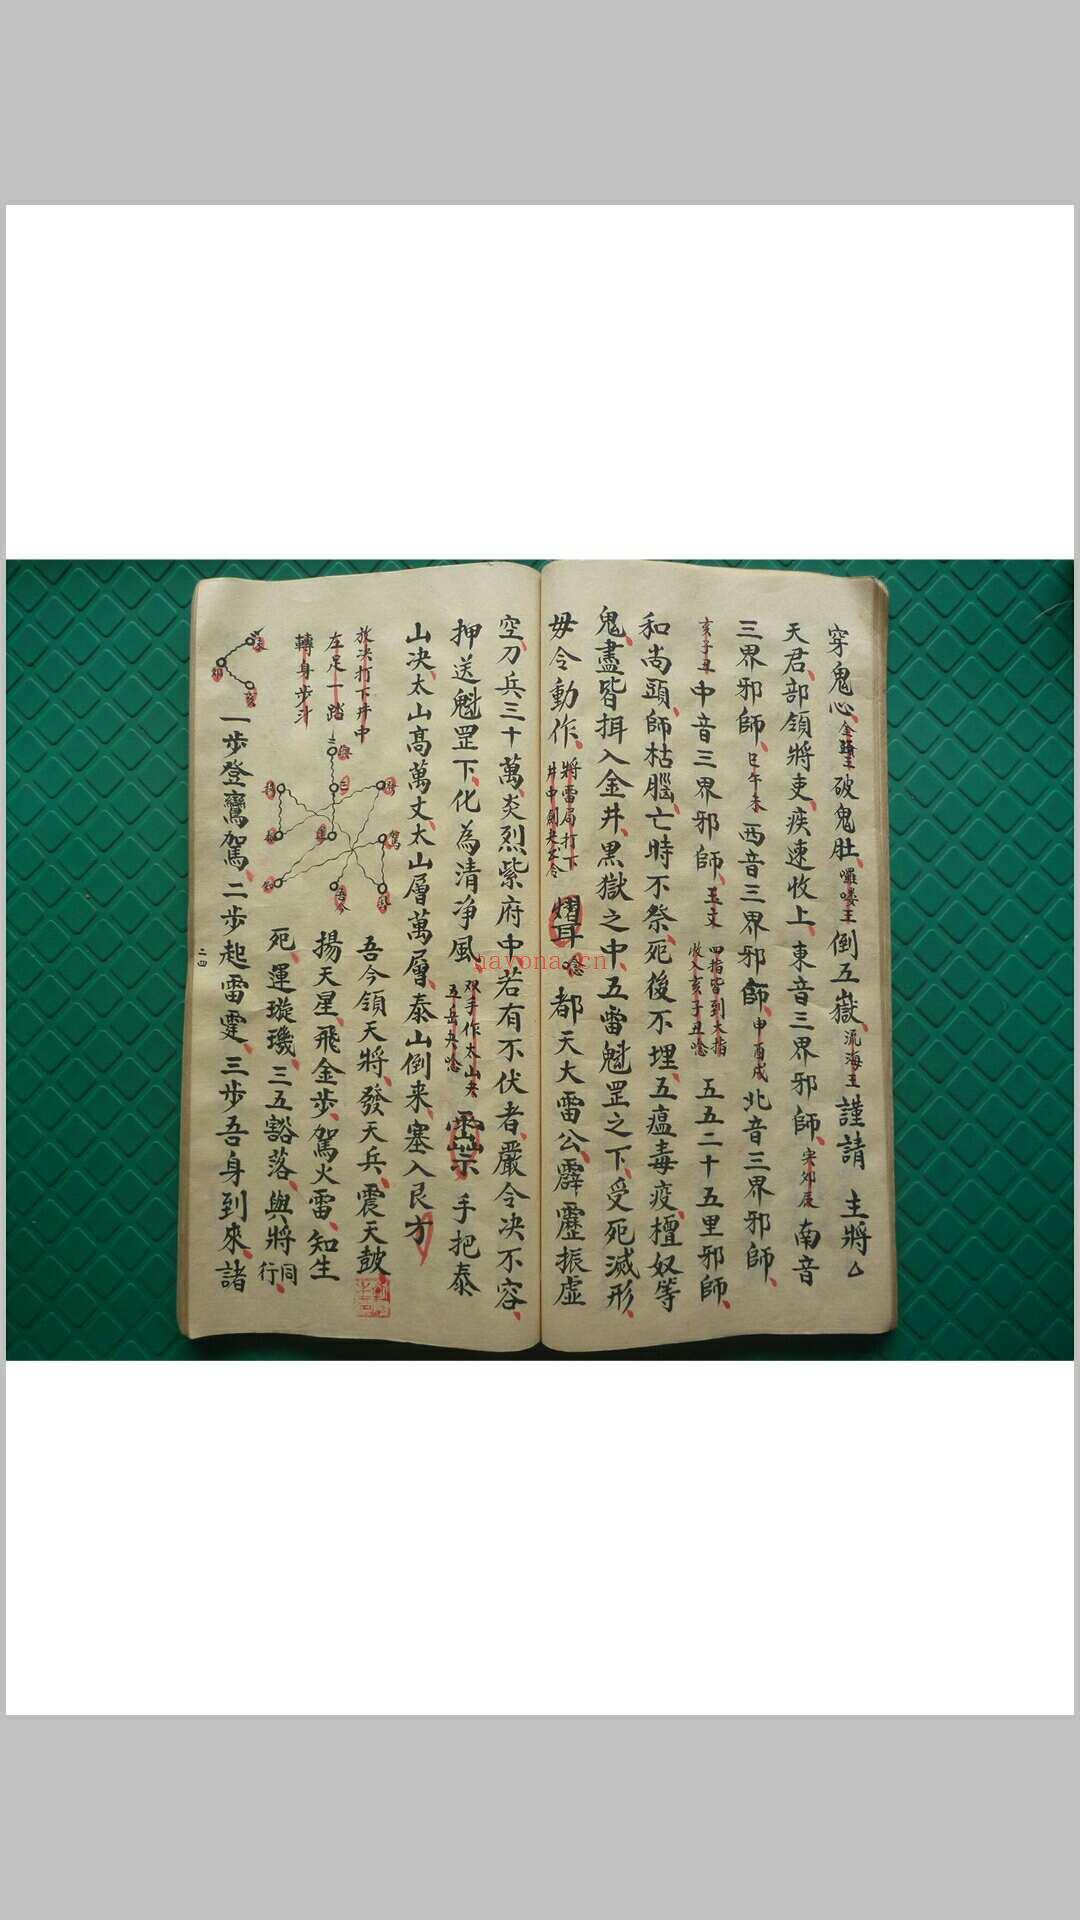 穿鬼心、金蹄王破鬼肚、囉嘍王倒五嶽、流海王謹請 主將△
天君、部領將吏、疾速收上、東音三界邪師、寅卯辰南音
三界邪師、巳午未西音三界邪師申酉戌北音三界邪師、
亥子丑中音三界邪師、玉文 四指皆到大指收入亥子丑唸 五五二十五里邪師、
和尚頭師枯腦、亡時不祭、死後不埋、五瘟毒疫、檀奴等
鬼、盡皆揖入金井、黑獄之中、五雷魁罡之下、受死滅形、
毋令動作、將雷局打下井中劍夬
唸 都天大雷公、霹靂振虛
空、刀兵三十萬、炎烈紫府中、若有不伏者、嚴令决不容、
押送魁罡下、化為清净風、双手作太山夬五岳夬唸 手把泰
山决、太山高萬丈、太山層萬層、泰山倒来、塞入艮方
放决打下井中
左足一踏
轉身步斗
吾今領天將、發天兵、震天鼓
揚天星、飛金步、駕火雷、知生
死、運璇璣、三五豁落、與將同行
一步登鸞駕、二步起雷霆、三步吾身到來、諸
二四
nayona.cn